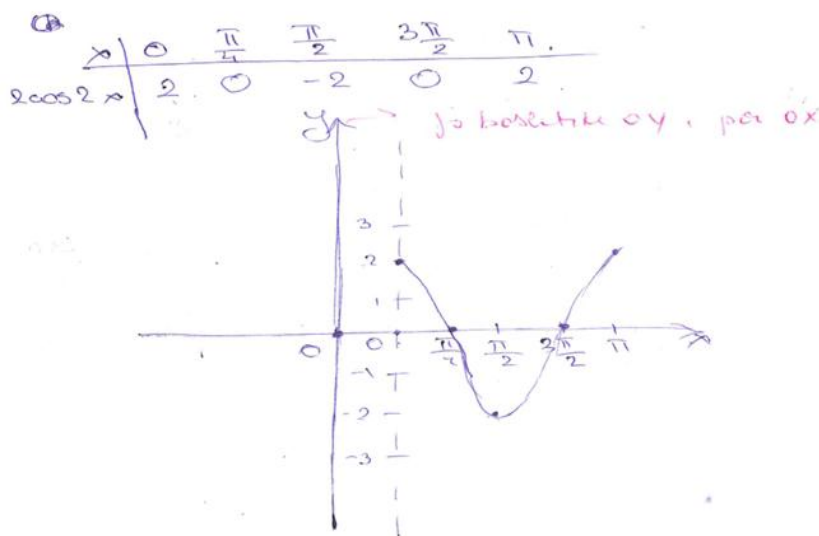 x 0 π/4 π/2 3π/2 π
2cos2x 2 0 -2 0 2
y
jo boshtin oy, por ox
3
2
1
0 0 π/4 π/2 3π/2 π x
-1
-2
-3